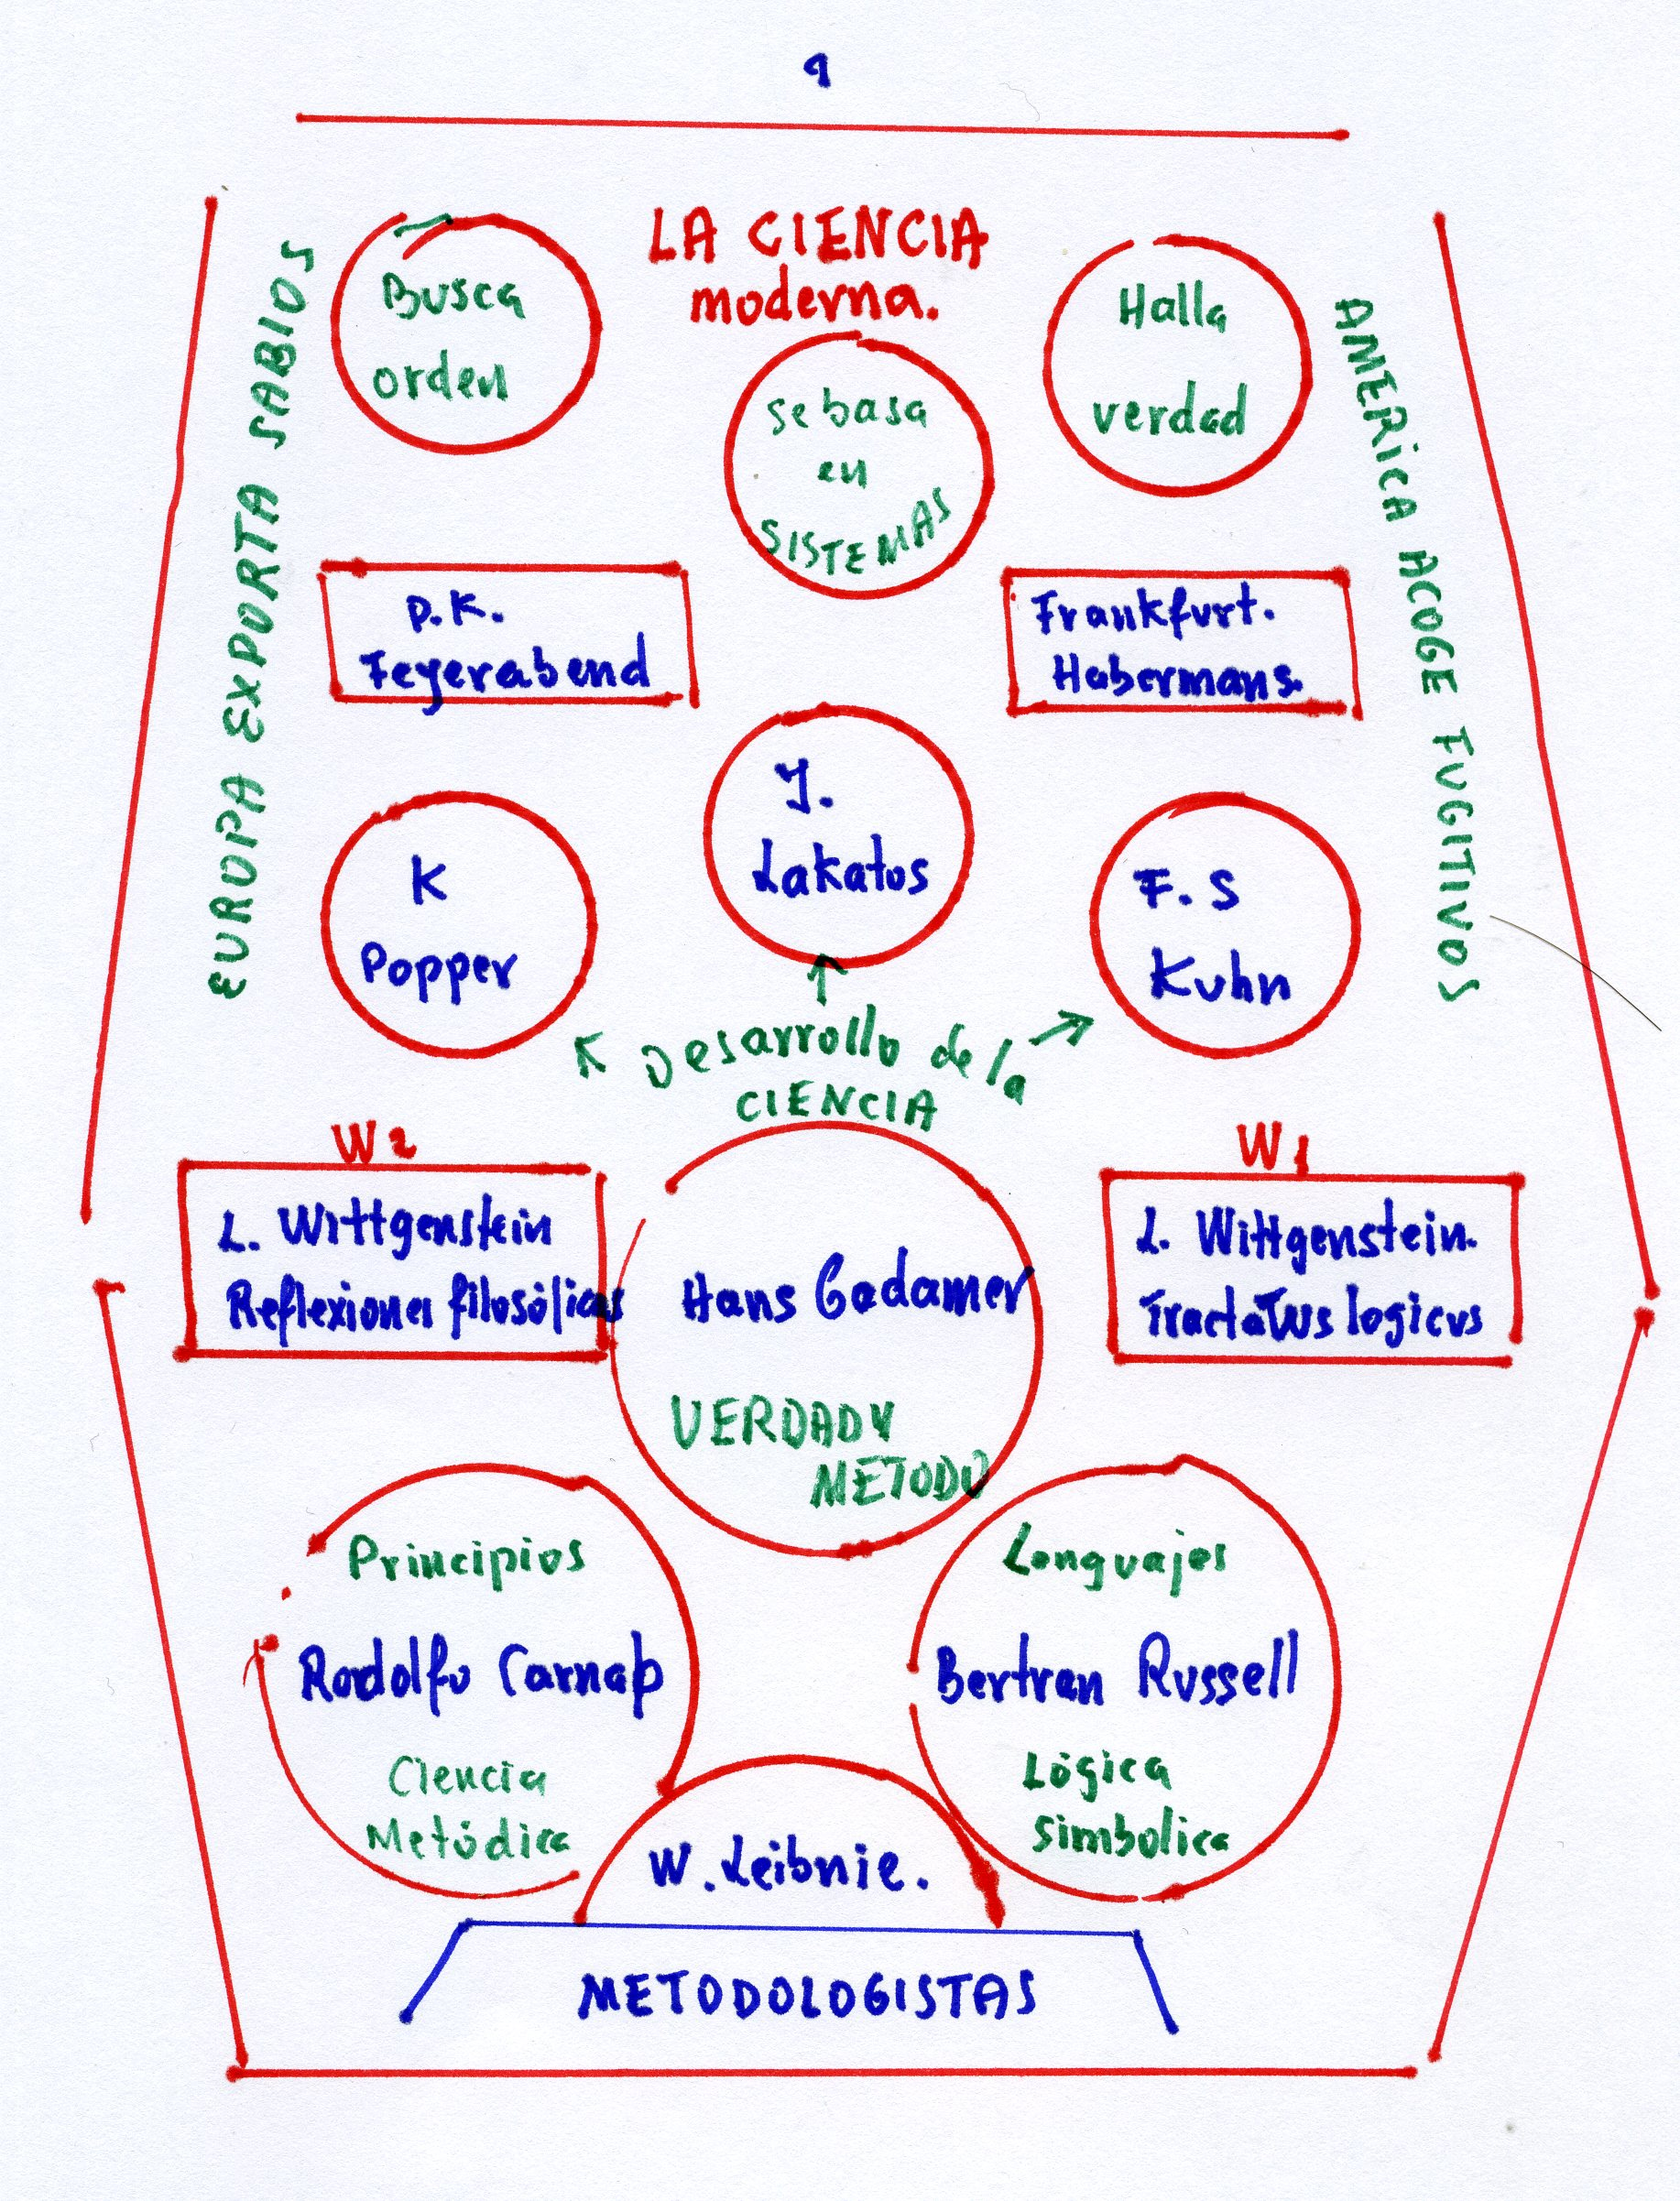 9
LA CIENCIA
moderna.
Busca
orden
se basa
en
SISTEMAS
Halla
verdad
EUROPA EXPORTA SABIOS
AMERICA ACOGE FUGITIVOS
P.K.
Feyerabend
Frankfurt.
Habermans.
J.
Lakatos
K
Popper
F. S
Kuhn
Desarrollo de la
CIENCIA
W2
L. Wittgenstein
Reflexiones filosóficas
Hans Gadamer
VERDAD Y
METODO
W1
L. Wittgenstein.
Tractatus logicus
Principios
Rodolfo Carnap
Ciencia
Metódica
Lenguajes
Bertran Russell
Lógica
simbolica
W. Leibnie.
METODOLOGISTAS